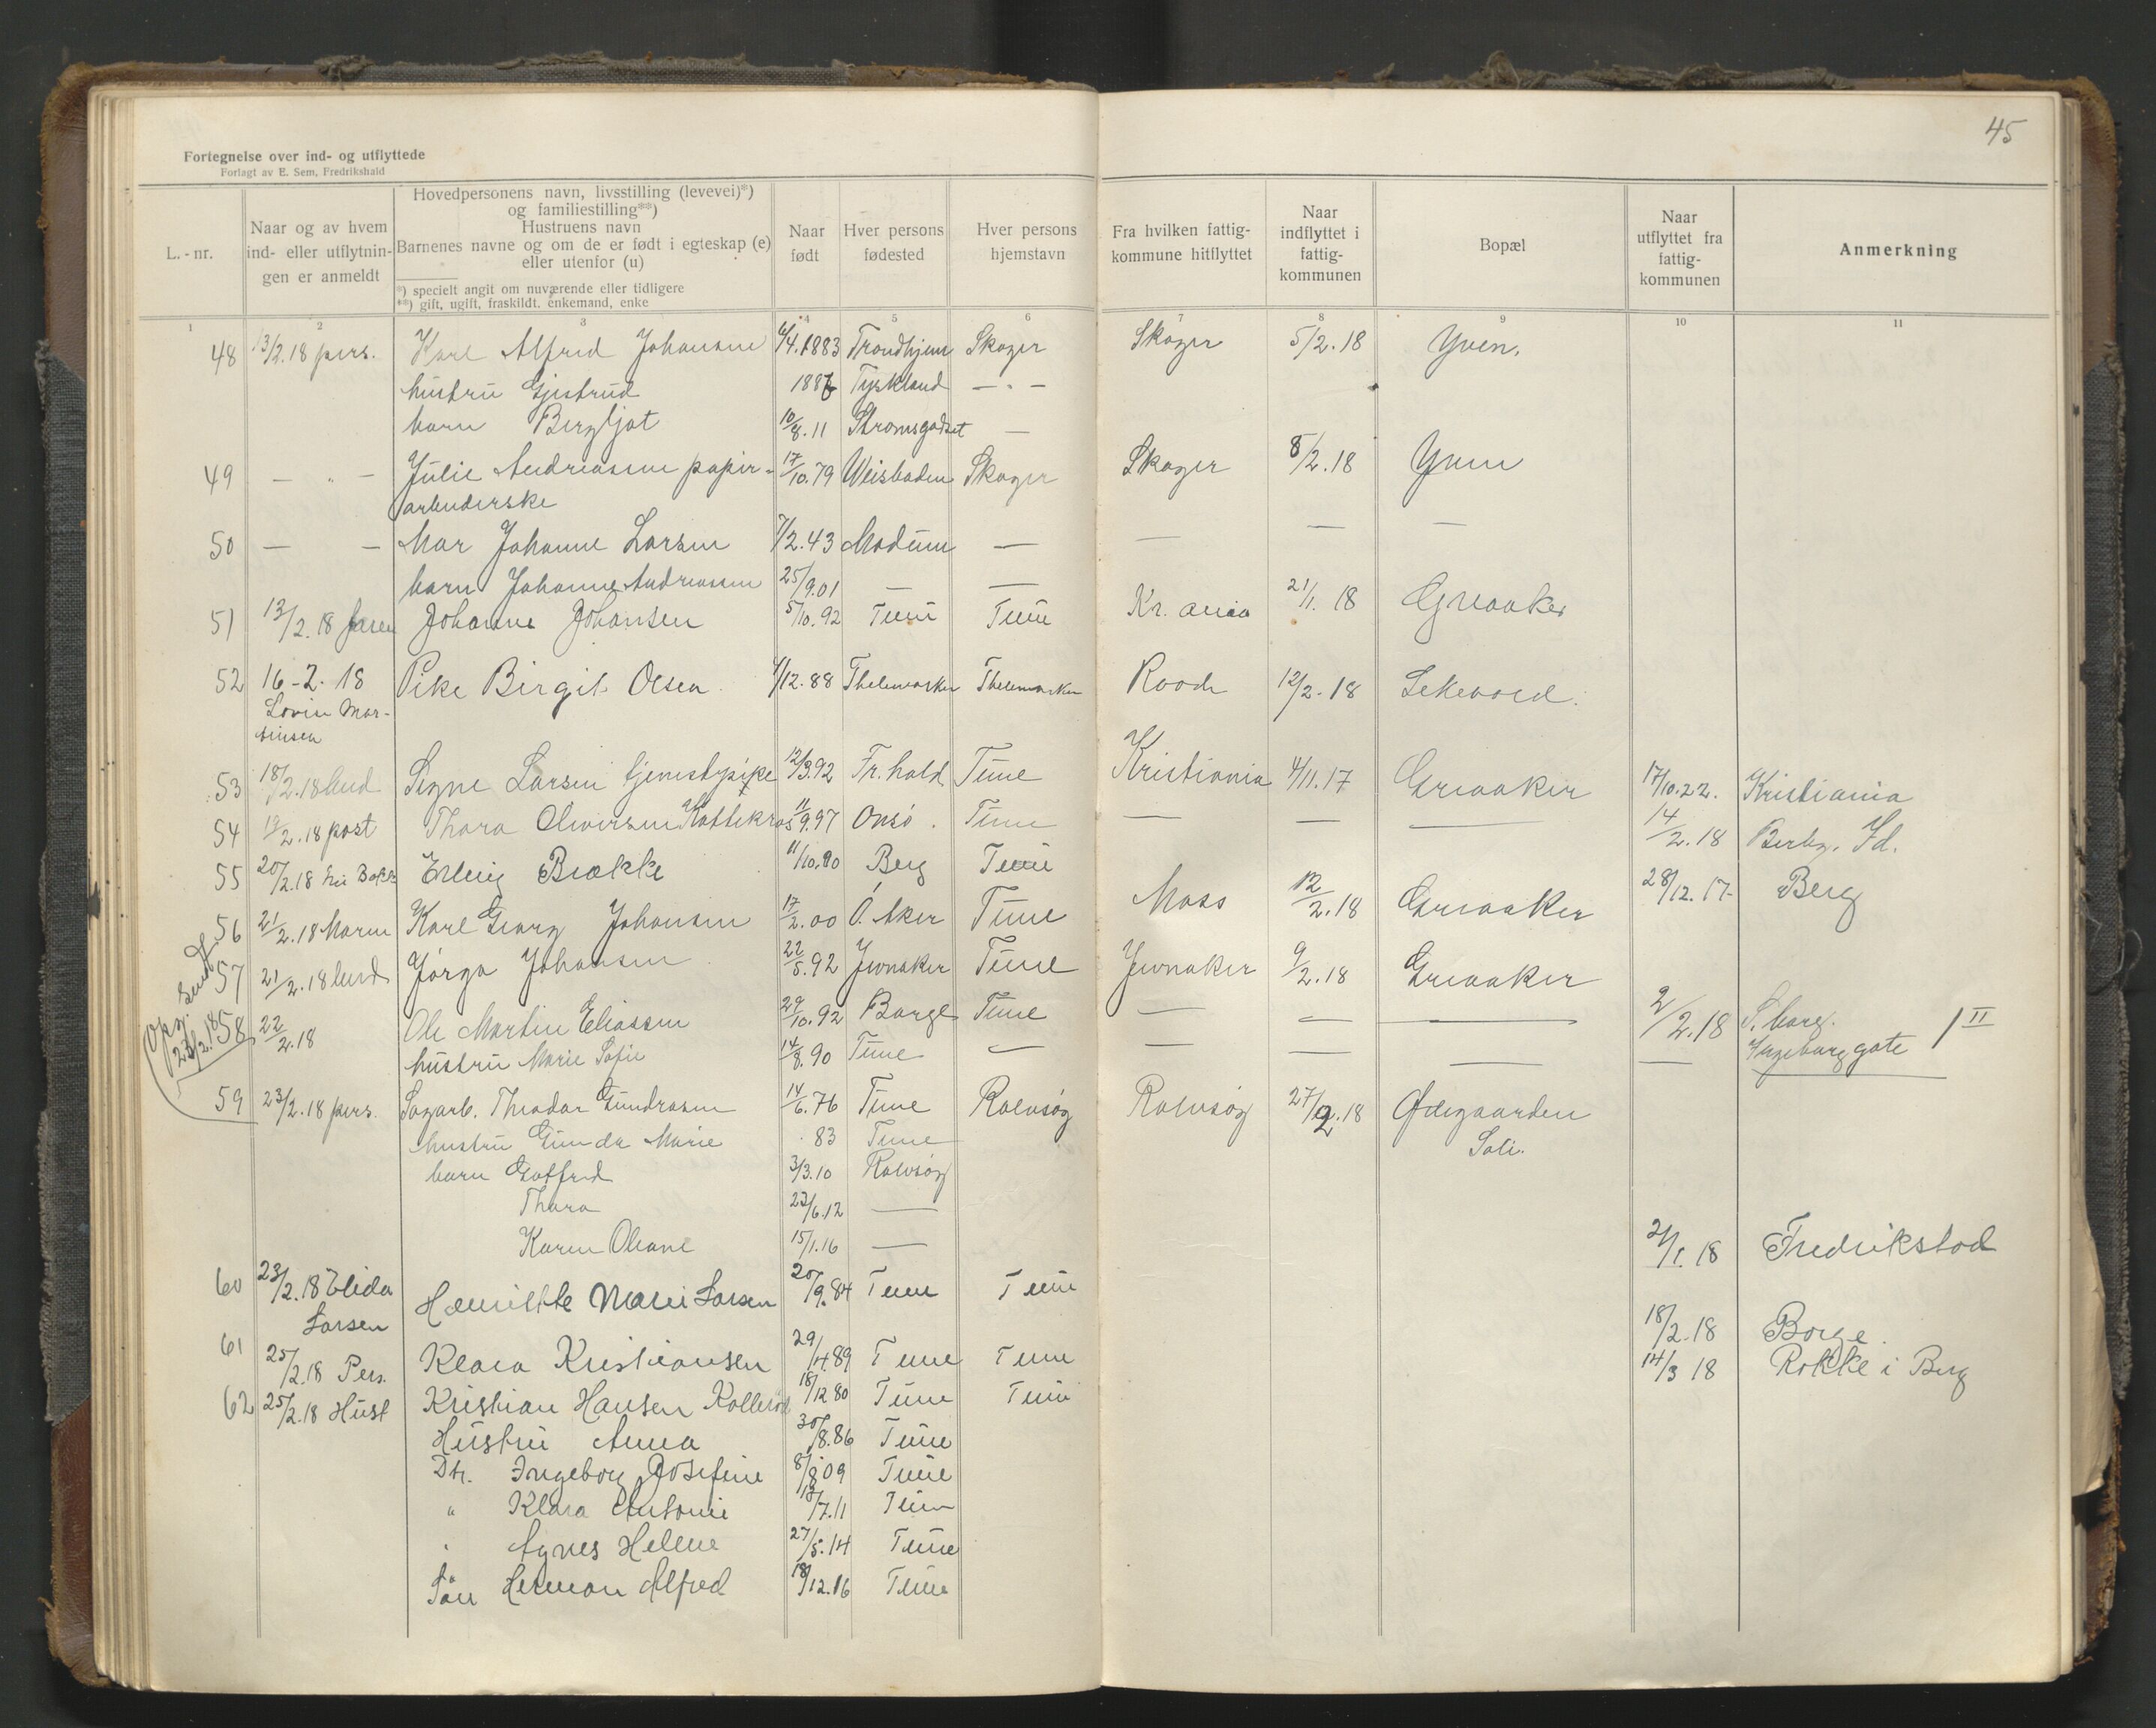 45
Fortegnelse over ind- og utflyttede
Forlagt av E. Sem, Fredrikshald
L.-nr.
Naar og av hvem
ind- eller utflytnin-
gen er anmeldt
Hovedpersonens navn, livsstilling (levevei)*)
og familiestilling**)
Hustruens navn
Barnenes navne og om de er født i egteskap (e)
eller utenfor (u)
*) specielt angit om nuværende eller tidligere
**) gift, ugift, fraskildt, enkemand, enke
Naar
født
Hver persons
fødested
Hver persons
hjemstavn
Fra hvilken fattig-
kommune hitflyttet
Naar
indflyttet i
fattig-
kommunen
Bopæl
Naar
utflyttet fra
fattig-
kommunen
Anmerkning
1 2 3 4 5 6 7 8 9 10 11
48 13/2.18 pers. Karl Alfred Johansen 6/4.1883 Trondhjem Skoger Skoger 5/2.18 Yven.
hustru Gjertrud 1887 Tyskland — " —
barn Bergljot 10/8.11 Strømsgodset —
49 — " — Julie Andreassen papir- 17/10.79 Weisbaden Skoger Skoger 8/2.18 Yven
arbeiderske
50 — — Mor Johanne Larsen 7/2.43 Modum — — — —
barn Johanne Andreassen 25/9.01 — —
51 13/2.18 Johanne Johansen 5/10.92 Tune Tune Kr.ania 21/1.18 Greaaker
52 16-2.18 Pike Birgit Olsen 1/12.88 Thelemarken Thelemarken Raade 12/2.18
Lovin Mar-
tinsen
53 18/2.18 lensd Signe Larsen tjenestepike 12/3.92 Fr.hald Tune Kristiania 4/11.17 Greaaker 17/10.22. Kristiania
54 19/2.18 post Thora Oliversen Kattekras 11/9.97 Onsø. Tune — — — 14/2.18 Berby. Id.
55 20/2.18 Erling Brække 11/10.90 Berg Tune 28/12.17. Berg
56 21/2.18 Moren Karl Georg Johansen 17/2.00 Ö. Aker Tune Moss 12/2.18 Greaaker
57 21/2.18 lensd Jørga Johansen 22/5.92 Jevnaker Tune Jevnaker 9/2.18 Greaaker
Opg. sendt
23/2.18
58 22/2.18 Ole Martin Eliassen 29/10.92 Borge Tune — — — 2/2.18 S.borg.
hustru Marie Sofie 14/8.90 Tune — — — — — Ingeborggate 1 II
59 23/2.18 pers. Sagarb. Theodor Gundrosen 14/6.76 Tune Rolvsøy Rolvsøy 27/2.18 Ødegaarden
hustru Gunda Marie 83 Tune Soli.
barn Gotfred 3/3.10 Rolvsøy
Thora 23/6.12 —
Karen Oleane 15/1.16 —
60 23/2.18 Elida Henriette Marie Larsen 20/9.84 Tune Tune 21/1.18 Fredrikstad
Larsen
61 25/2.18 Pers. Klara Kristiansen 29/4.89 Tune Tune 18/2.18 Borge.
62 25/2.18 Hust Kristian Hansen Kollerød 18/12 80 Tune Tune 14/3 18 Rokke i Berg
Hustru Anna 30/8.86 Tune
Dtr. Ingeborg Josefine 8/8 09 Tune
" Klara Antonie 18/7.11 Tune
" Agnes Helene 27/5.14 Tune
Søn Herman Alfred 18/12.16 Tune